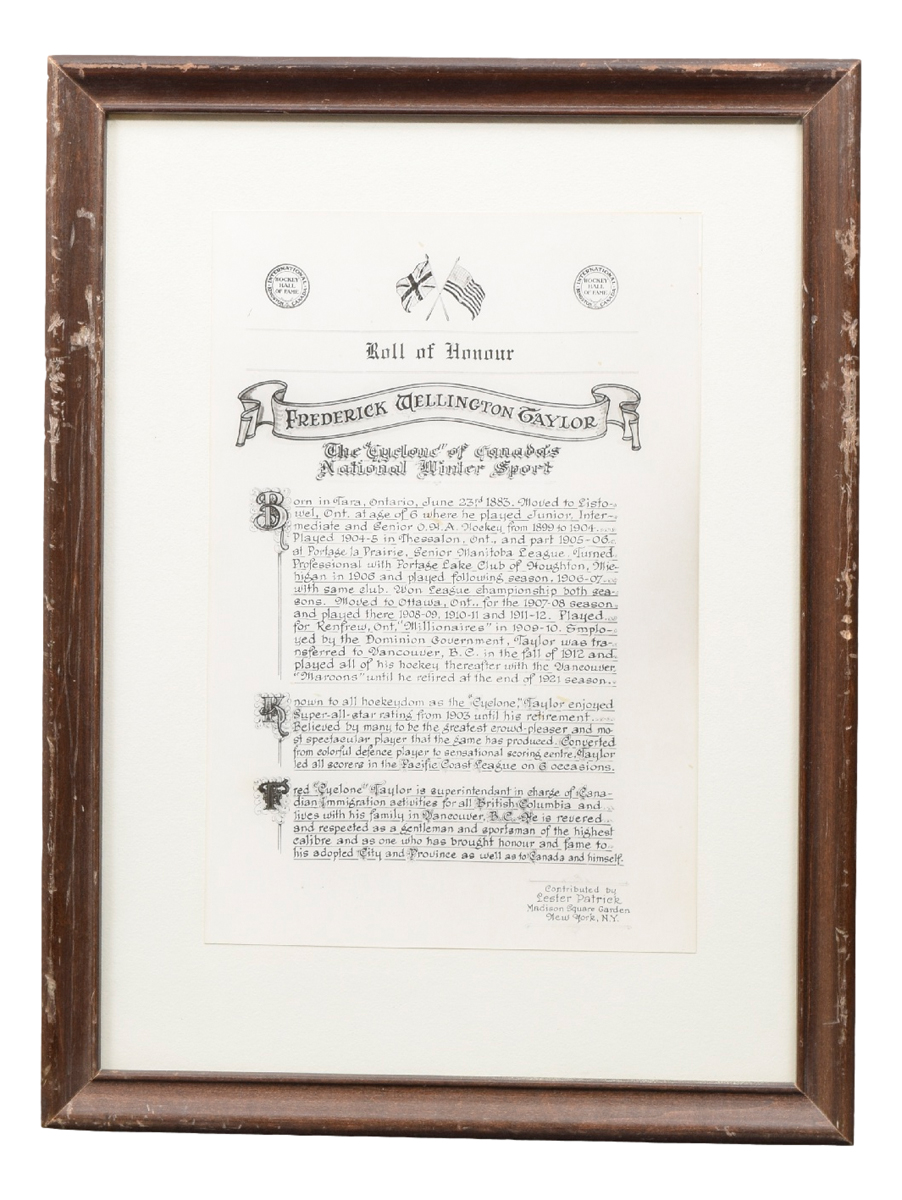 INTERNATIONAL
HOCKEY
HALL
OF FAME
KINGSTON, CANADA
INTERNATIONAL
HOCKEY
HALL
OF FAME
KINGSTON, CANADA
Roll of Honour
FREDERICK WELLINGTON TAYLOR
The "Cyclone" of Canada's
National Winter Sport
Born in Tara, Ontario, June 23rd 1883. Moved to Listo-
wel, Ont. at age of 6 where he played Junior, Inter-
mediate and Senior O.H.A. Hockey from 1899 to 1904...
Played 1904-5 in Thessalon, Ont., and part 1905-06
at Portage la Prairie, Senior Manitoba League. Turned
Professional with Portage Lake Club of Houghton, Mic-
higan in 1906 and played following season, 1906-07...
with same club. Won League championship both sea-
sons. Moved to Ottawa, Ont., for the 1907-08 season
and played there 1908-09, 1910-11 and 1911-12. Played
for Renfrew, Ont. "Millionaires" in 1909-10. Emplo-
yed by the Dominion Government, Taylor was tra-
nsferred to Vancouver, B.C. in the fall of 1912 and
played all of his hockey thereafter with the Vancouver
"Maroons" until he retired at the end of 1921 season...
Known to all hockeydom as the "Cyclone," Taylor enjoyed
Super-all-star rating from 1903 until his retirement...
Believed by many to be the greatest crowd-pleaser and mo-
st spectacular player that the game has produced. Converted
from colorful defence player to sensational scoring centre, Taylor
led all scorers in the Pacific Coast League on 6 occasions.
Fred "Cyclone" Taylor is superintendant in charge of Cana-
dian Immigration activities for all British Columbia and...
lives with his family in Vancouver, B.C. He is revered...
and respected as a gentleman and sportsman of the highest
calibre and as one who has brought honour and fame to...
his adopted City and Province as well as to Canada and himself.
Contributed by
Lester Patrick
Madison Square Garden
New York, N.Y.